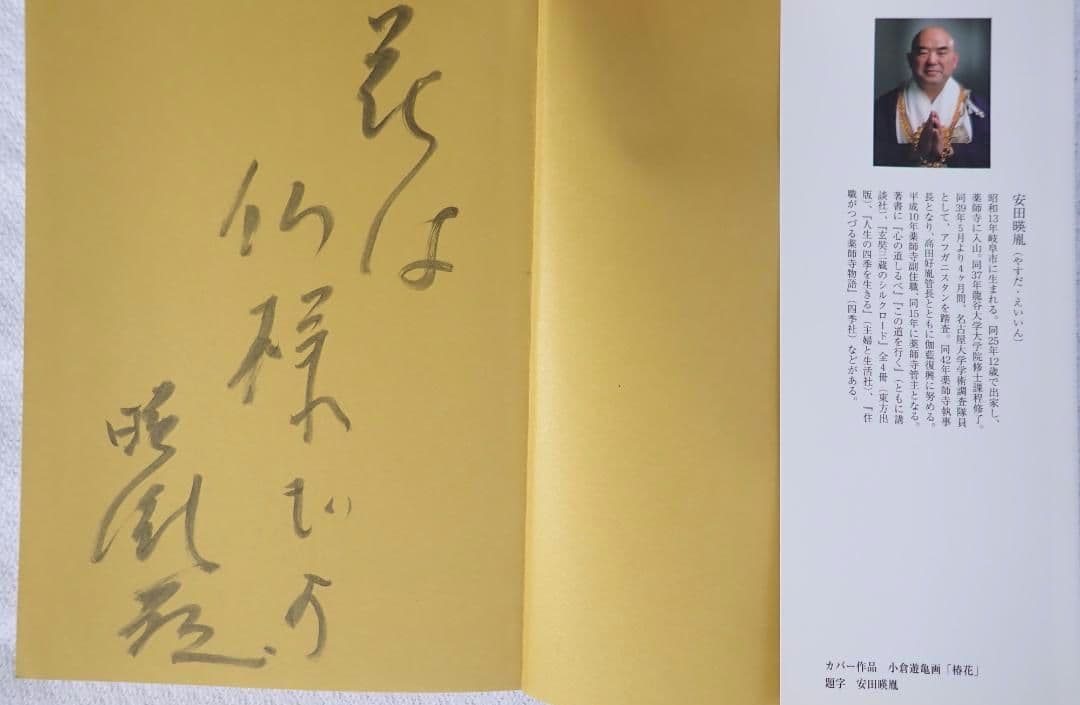 花は
仏様です
暎胤
安田暎胤(やすだ・えいいん)
昭和13年岐阜市に生まれる。同25年12歳で出家し、
薬師寺に入山。同37年龍谷大学大学院修士課程修了。
同39年5月より4ヶ月間、名古屋大学学術調査隊員
として、アフガニスタンを踏査。同42年薬師寺執事
長となり、高田好胤管長とともに伽藍復興に努める。
平成10年薬師寺副住職、同15年に薬師寺管主となる。
著書に『心の道しるべ』『この道を行く』(ともに講
談社)、『玄奘三蔵のシルクロード』全4冊(東方出
版)、『人生の四季を生きる』(主婦と生活社)、『住
職がつづる薬師寺物語』(四季社)などがある。
カバー作品 小倉遊亀画「椿花」
題字 安田暎胤